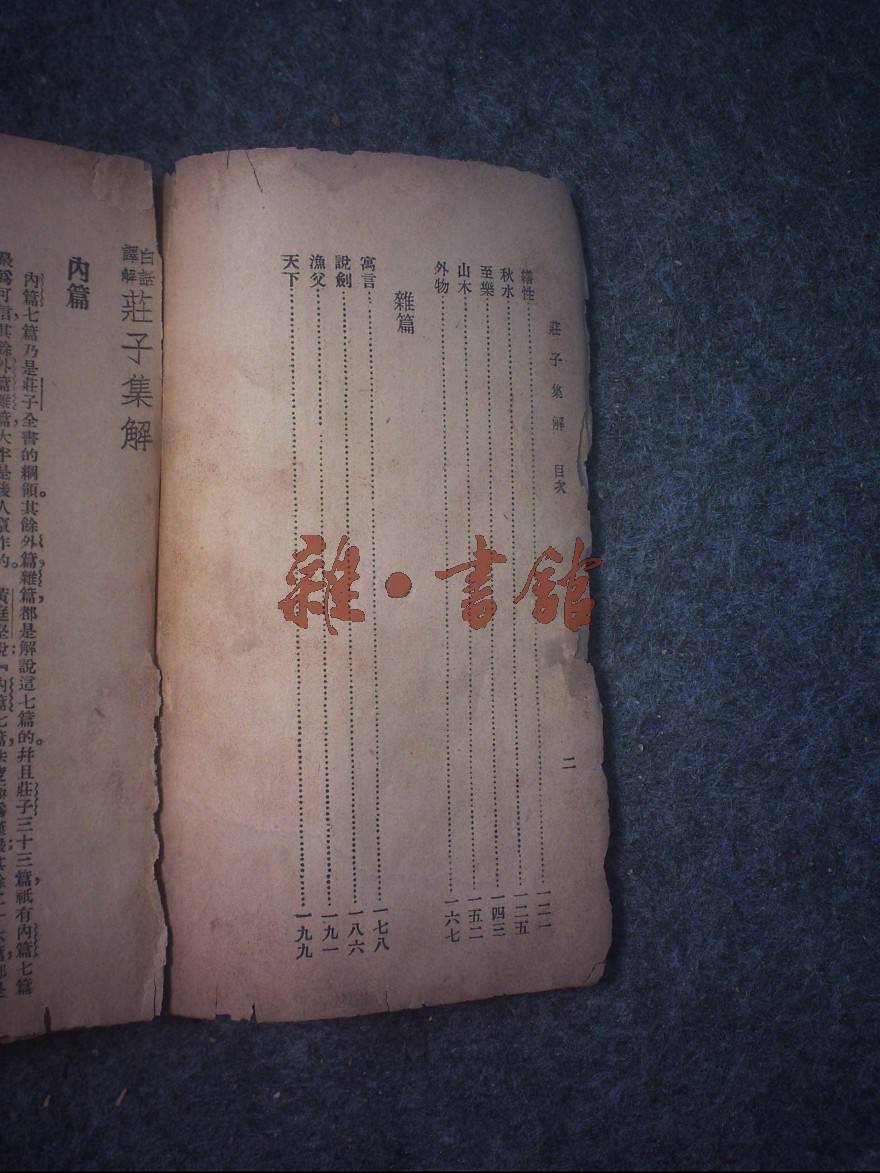 莊子集解 目次
二
繕性 一二一
秋水 一二五
至樂 一四三
山木 一五二
外物 一六七
雜篇
寓言 一七八
說劍 一八六
漁父 一九一
天下 一九九
雜·書館
白話譯解 莊子集解
內篇
內篇七篇乃是莊子全書的綱領。其餘外篇，雜篇，都是解說這七篇的。并且莊子三十三篇，祇有內篇七篇
最爲可信，其餘外篇雜篇大半是後人